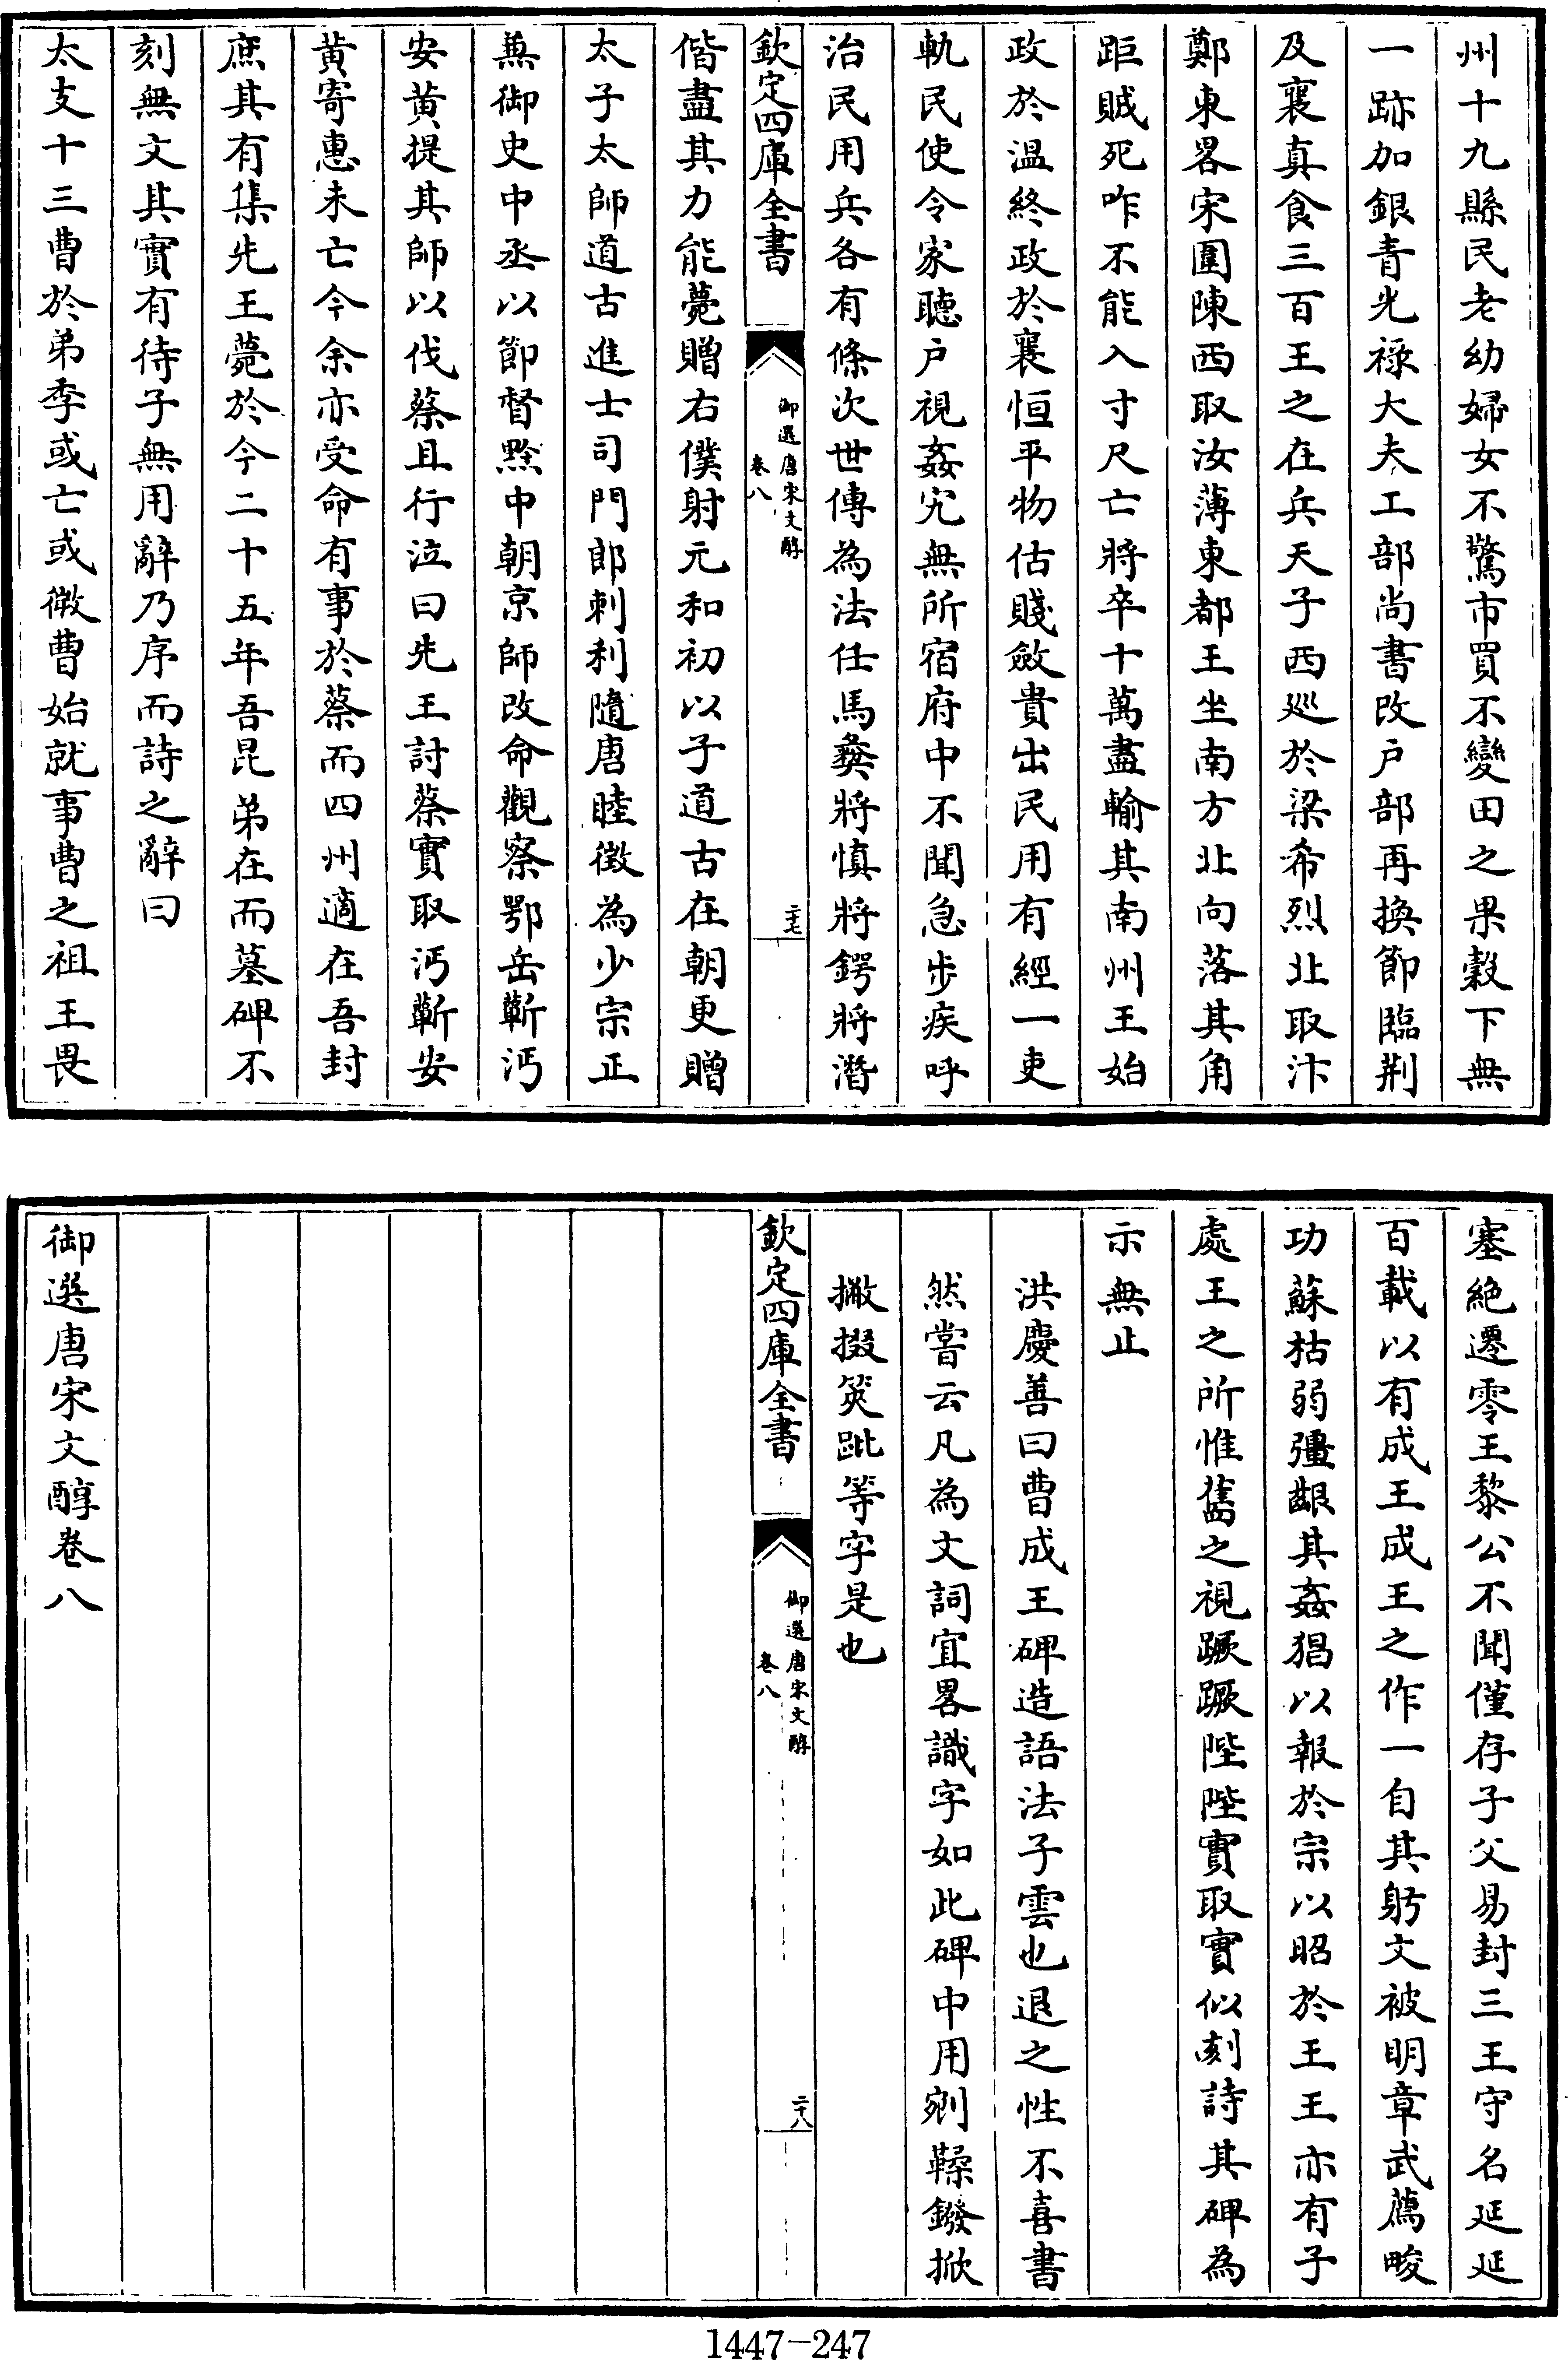 州十九縣民老幼婦女不驚市買不變田之果穀下無
一跡加銀青光祿大夫工部尚書改户部再換節臨荆
及襄真食三百王之在兵天子西巡於梁希烈北取汴
鄭東畧宋圍陳西取汝薄東都王坐南方北向落其角
距賊死咋不能入寸尺亡將卒十萬盡輸其南州王始
政於温終政於襄恒平物估賤斂貴出民用有經一吏
軌民使令家聽户視姦宄無所宿府中不聞急步疾呼
治民用兵各有條次世傳為法任馬彜將慎將鍔將潛
欽定四庫全書
御選唐宋文醇
卷八
二十七
偕盡其力能薨贈右僕射元和初以子道古在朝更贈
太子太師道古進士司門郎刺利隨唐睦徵為少宗正
兼御史中丞以節督黔中朝京師改命觀察鄂岳蘄沔
安黄提其師以伐蔡且行泣曰先王討蔡實取沔蘄安
黄寄惠未亡今余亦受命有事於蔡而四州適在吾封
庶其有集先王薨於今二十五年吾昆弟在而墓碑不
刻無文其實有待子無用辭乃序而詩之辭曰
太支十三曹於弟季或亡或微曹始就事曹之祖王畏
塞絶遷零王黎公不聞僅存子父易封三王守名延延
百載以有成王成王之作一自其躬文被明章武薦畯
功蘇枯弱彊齦其姦猖以報於宗以昭於王王亦有子
處王之所惟舊之視蹶蹶陛陛實取實似刻詩其碑為
示無止
洪慶善曰曹成王碑造語法子雲也退之性不喜書
然嘗云凡為文詞宜畧識字如此碑中用剜鞣鏺掀
撇掇筴跐等字是也
欽定四庫全書
御選唐宋文醇
卷八
二十八
御選唐宋文醇卷八
1447-247